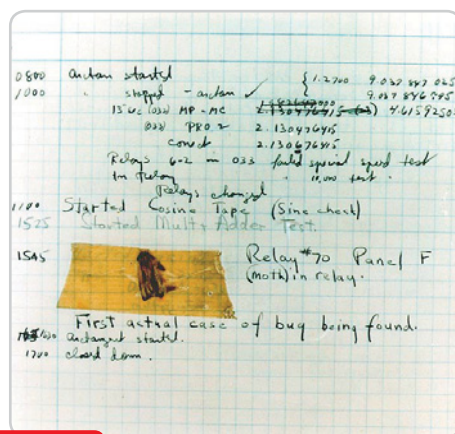 0800 antan started
1000 " stopped - antan ✓ { 1.2700 9.037 847 025
9.037 846 995
13"uc (032) MP-MC 4.615925059
(033) PRO 2 2.130476415
conect 2.130676415
Relays 6-2 in 033 failed special speed test
in Relay " 10,000 test.
Relays changed
1100 Started Cosine Tape (Sine check)
1525 Started Mult+Adder Test.
1545 Relay #70 Panel F
(moth) in relay.
First actual case of bug being found.
antangent started.
1700 closed down.